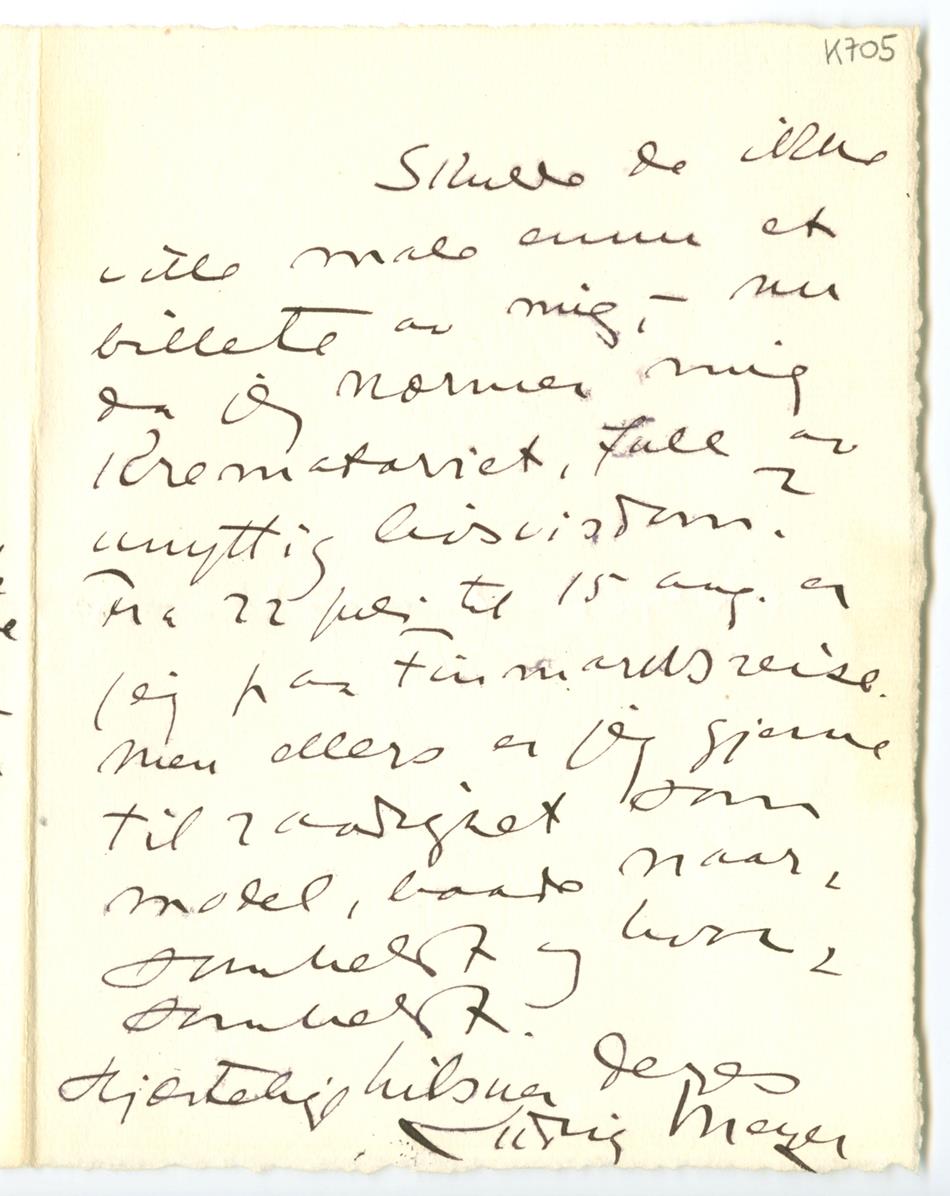 K705
Skulde de ikke
ville male ennu et
billete av mig, – nu
da jeg nærmer mig
Krematoriet, full av
unyttig livsvisdom?
Fra 22 juli til 15 aug. er
jeg paa Finmarksreise.
Men ellers er jeg gjerne
til raadighet som
model, baade naar,
somhelst og hvor,
somhelst.
Hjertelig hilsner Deres
Ludvig Meyer